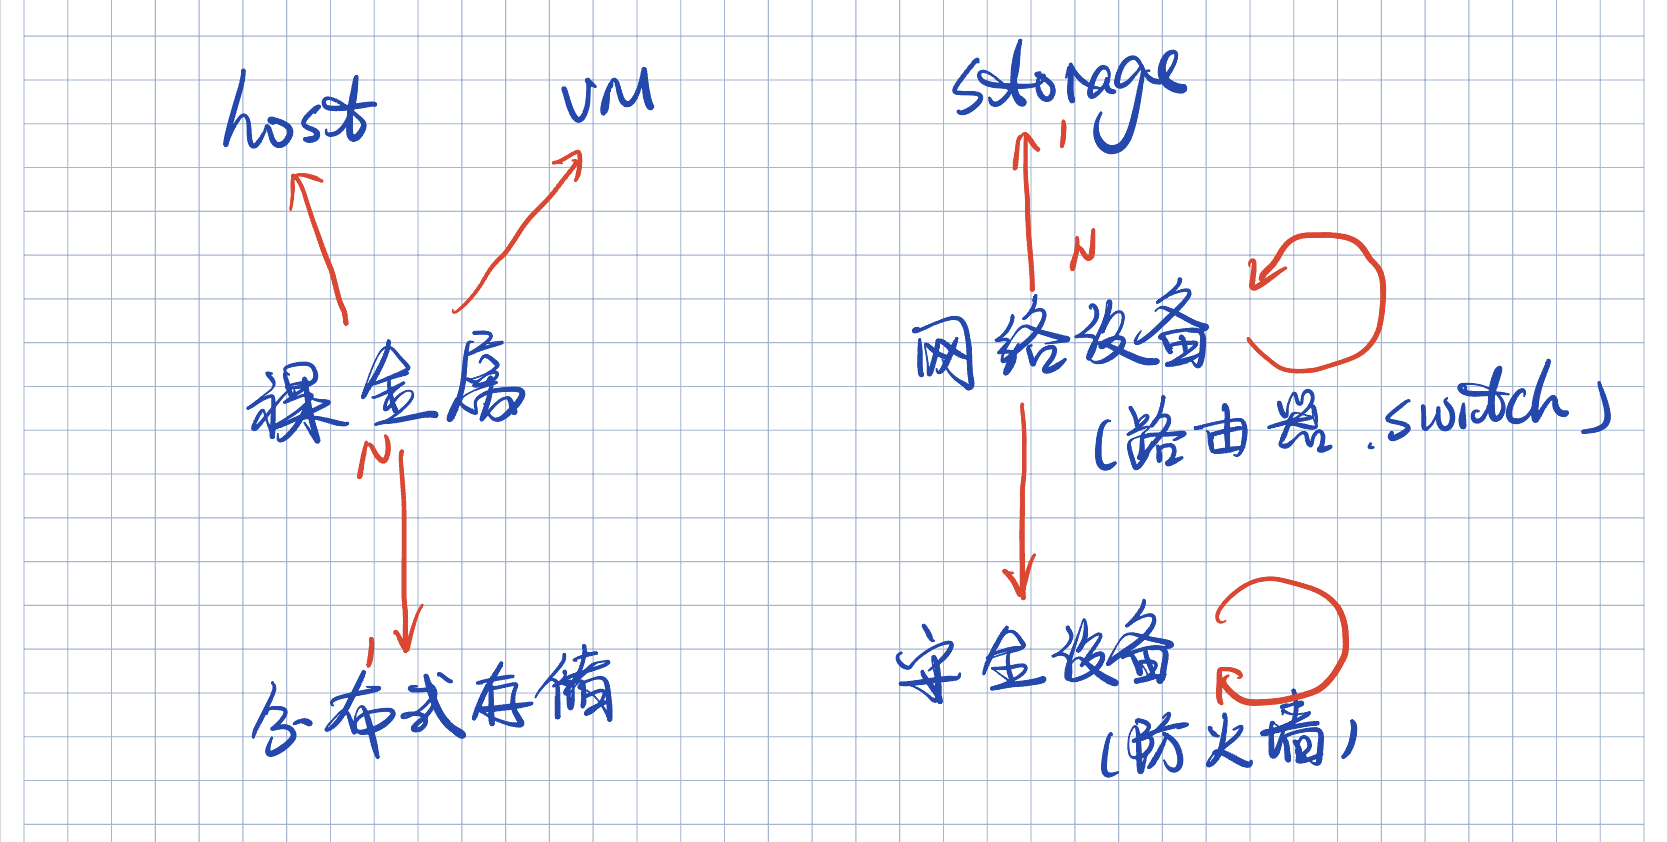 host
VM
裸金属
N
1
分布式存储
storage
1
N
网络设备
(路由器.switch)
安全设备
(防火墙)